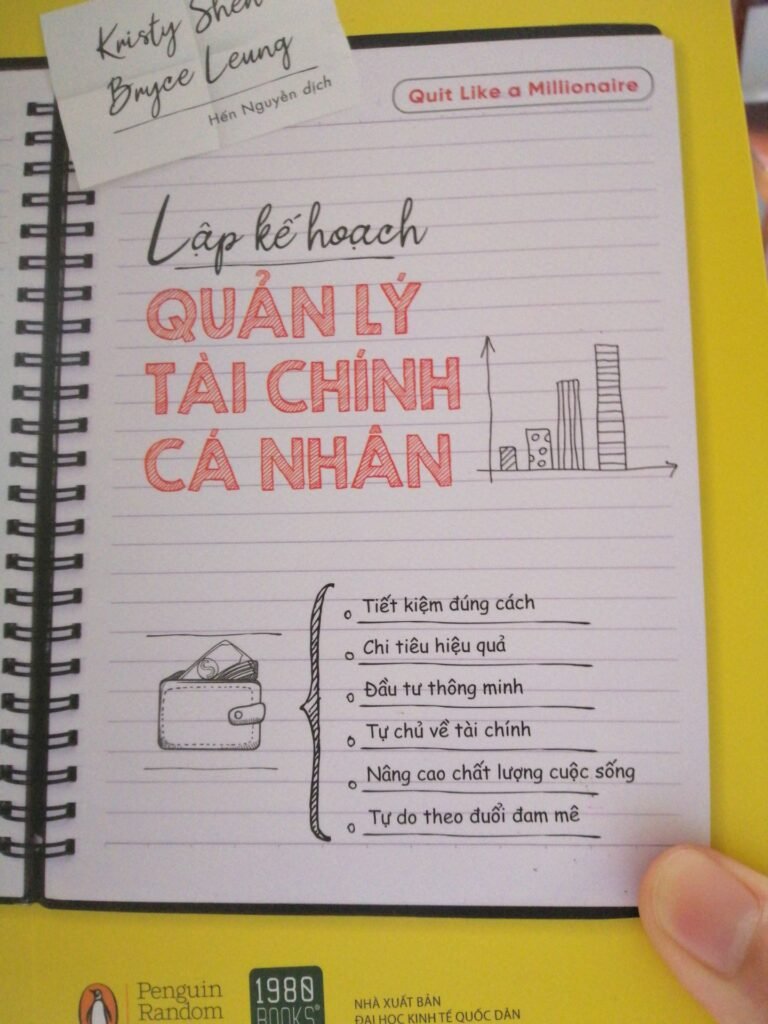 Kristy Shen
Bryce Leung
Hến Nguyễn dịch
Quit Like a Millionaire
Lập kế hoạch
QUẢN LÝ
TÀI CHÍNH
CÁ NHÂN
Tiết kiệm đúng cách
Chi tiêu hiệu quả
Đầu tư thông minh
Tự chủ về tài chính
Nâng cao chất lượng cuộc sống
Tự do theo đuổi đam mê
Penguin
Random
1980
BOOKS
NHÀ XUẤT BẢN
ĐẠI HỌC KINH TẾ QUỐC DÂN